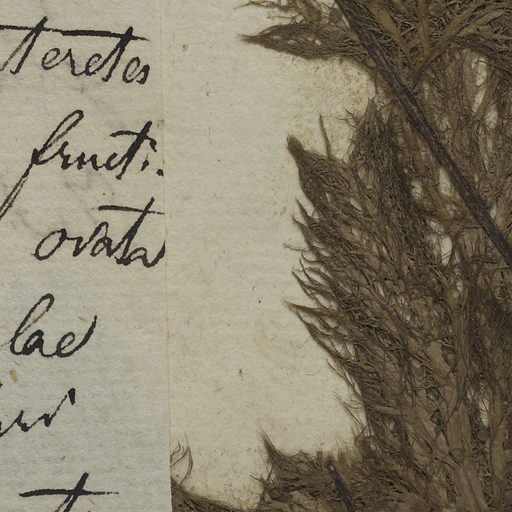 teretes
fructi-
ovata
lae